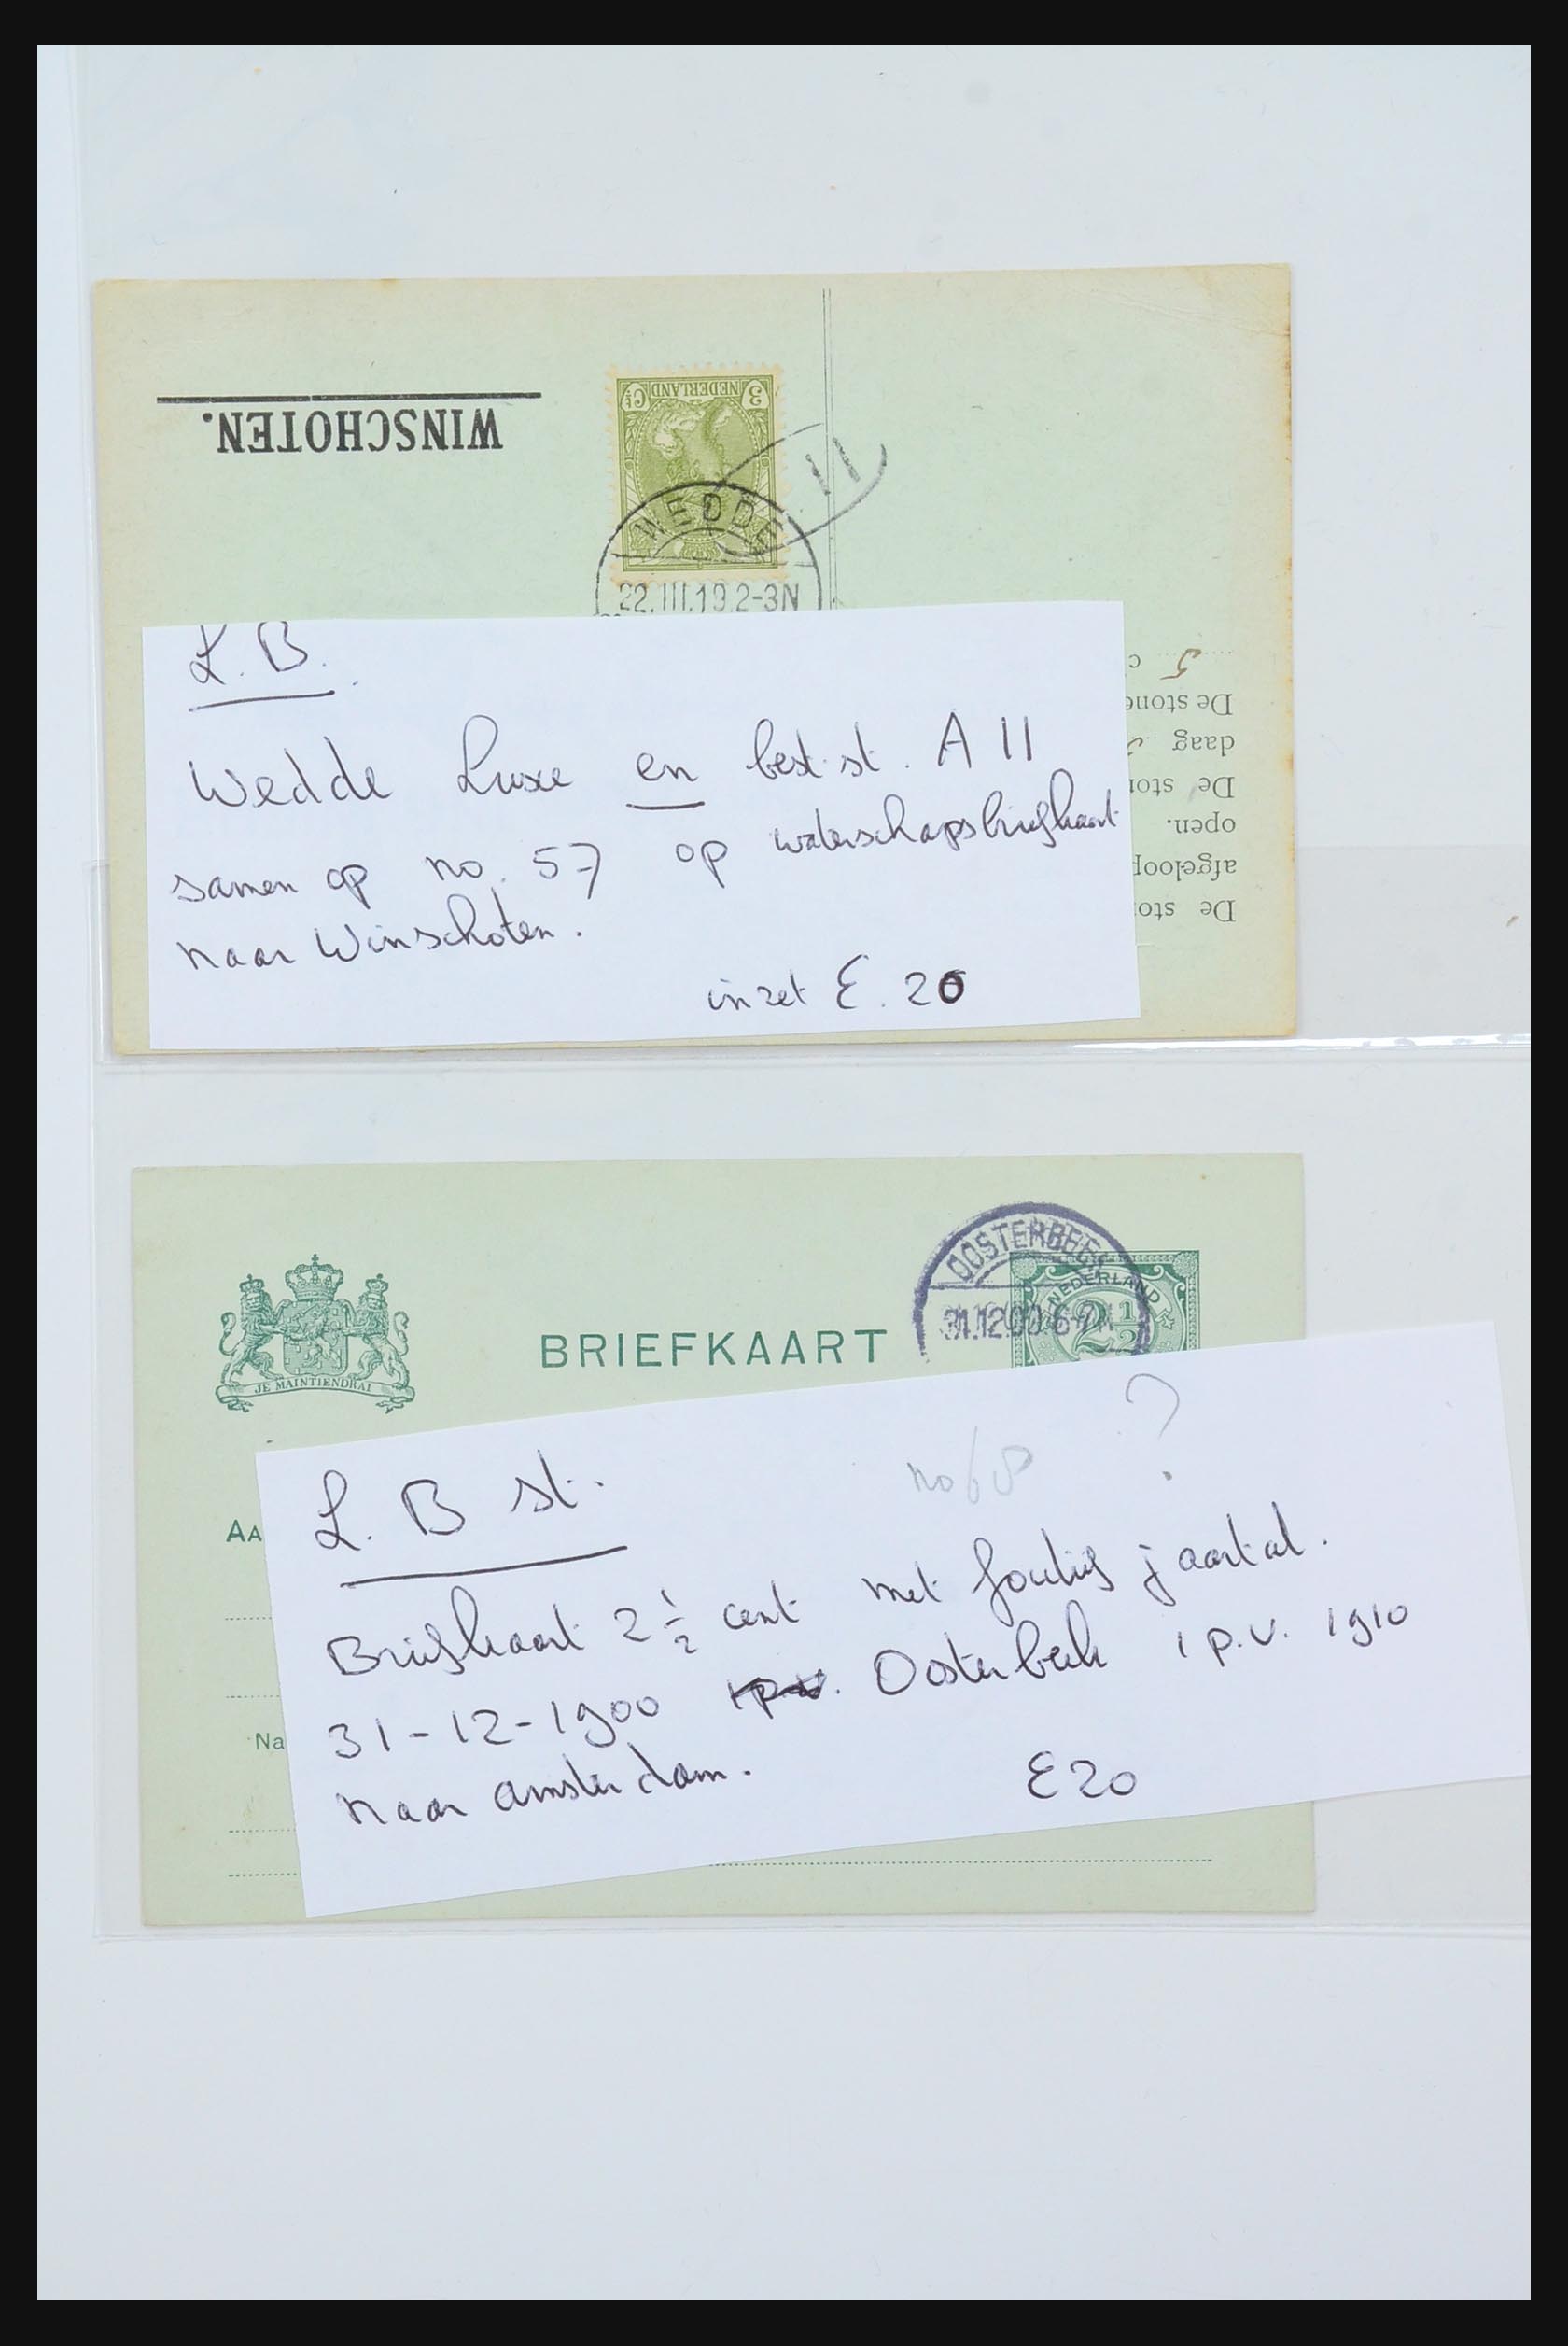 WINSCHOTEN.
3 NEDERLAND Ct
11
WEDDE
22.III.19.2-3N
L.B.
5 c
De stone
daag
De ston
open.
afgeloop
De ston
Wedde Luxe en best. st. A 11
samen op no. 57 op waterschapsbriefkaart
naar Winschoten.
inzet E. 20
OOSTERBEEK
31.12.00.6-7
NEDERLAND
2½
BRIEFKAART
JE MAINTIENDRAI
AA
Na
no 68 ?
L. B st.
Briefkaart 2½ cent met foutief jaartal.
31-12-1900 Oosterbeek i.p.v. 1910
naar amsterdam.
E 20